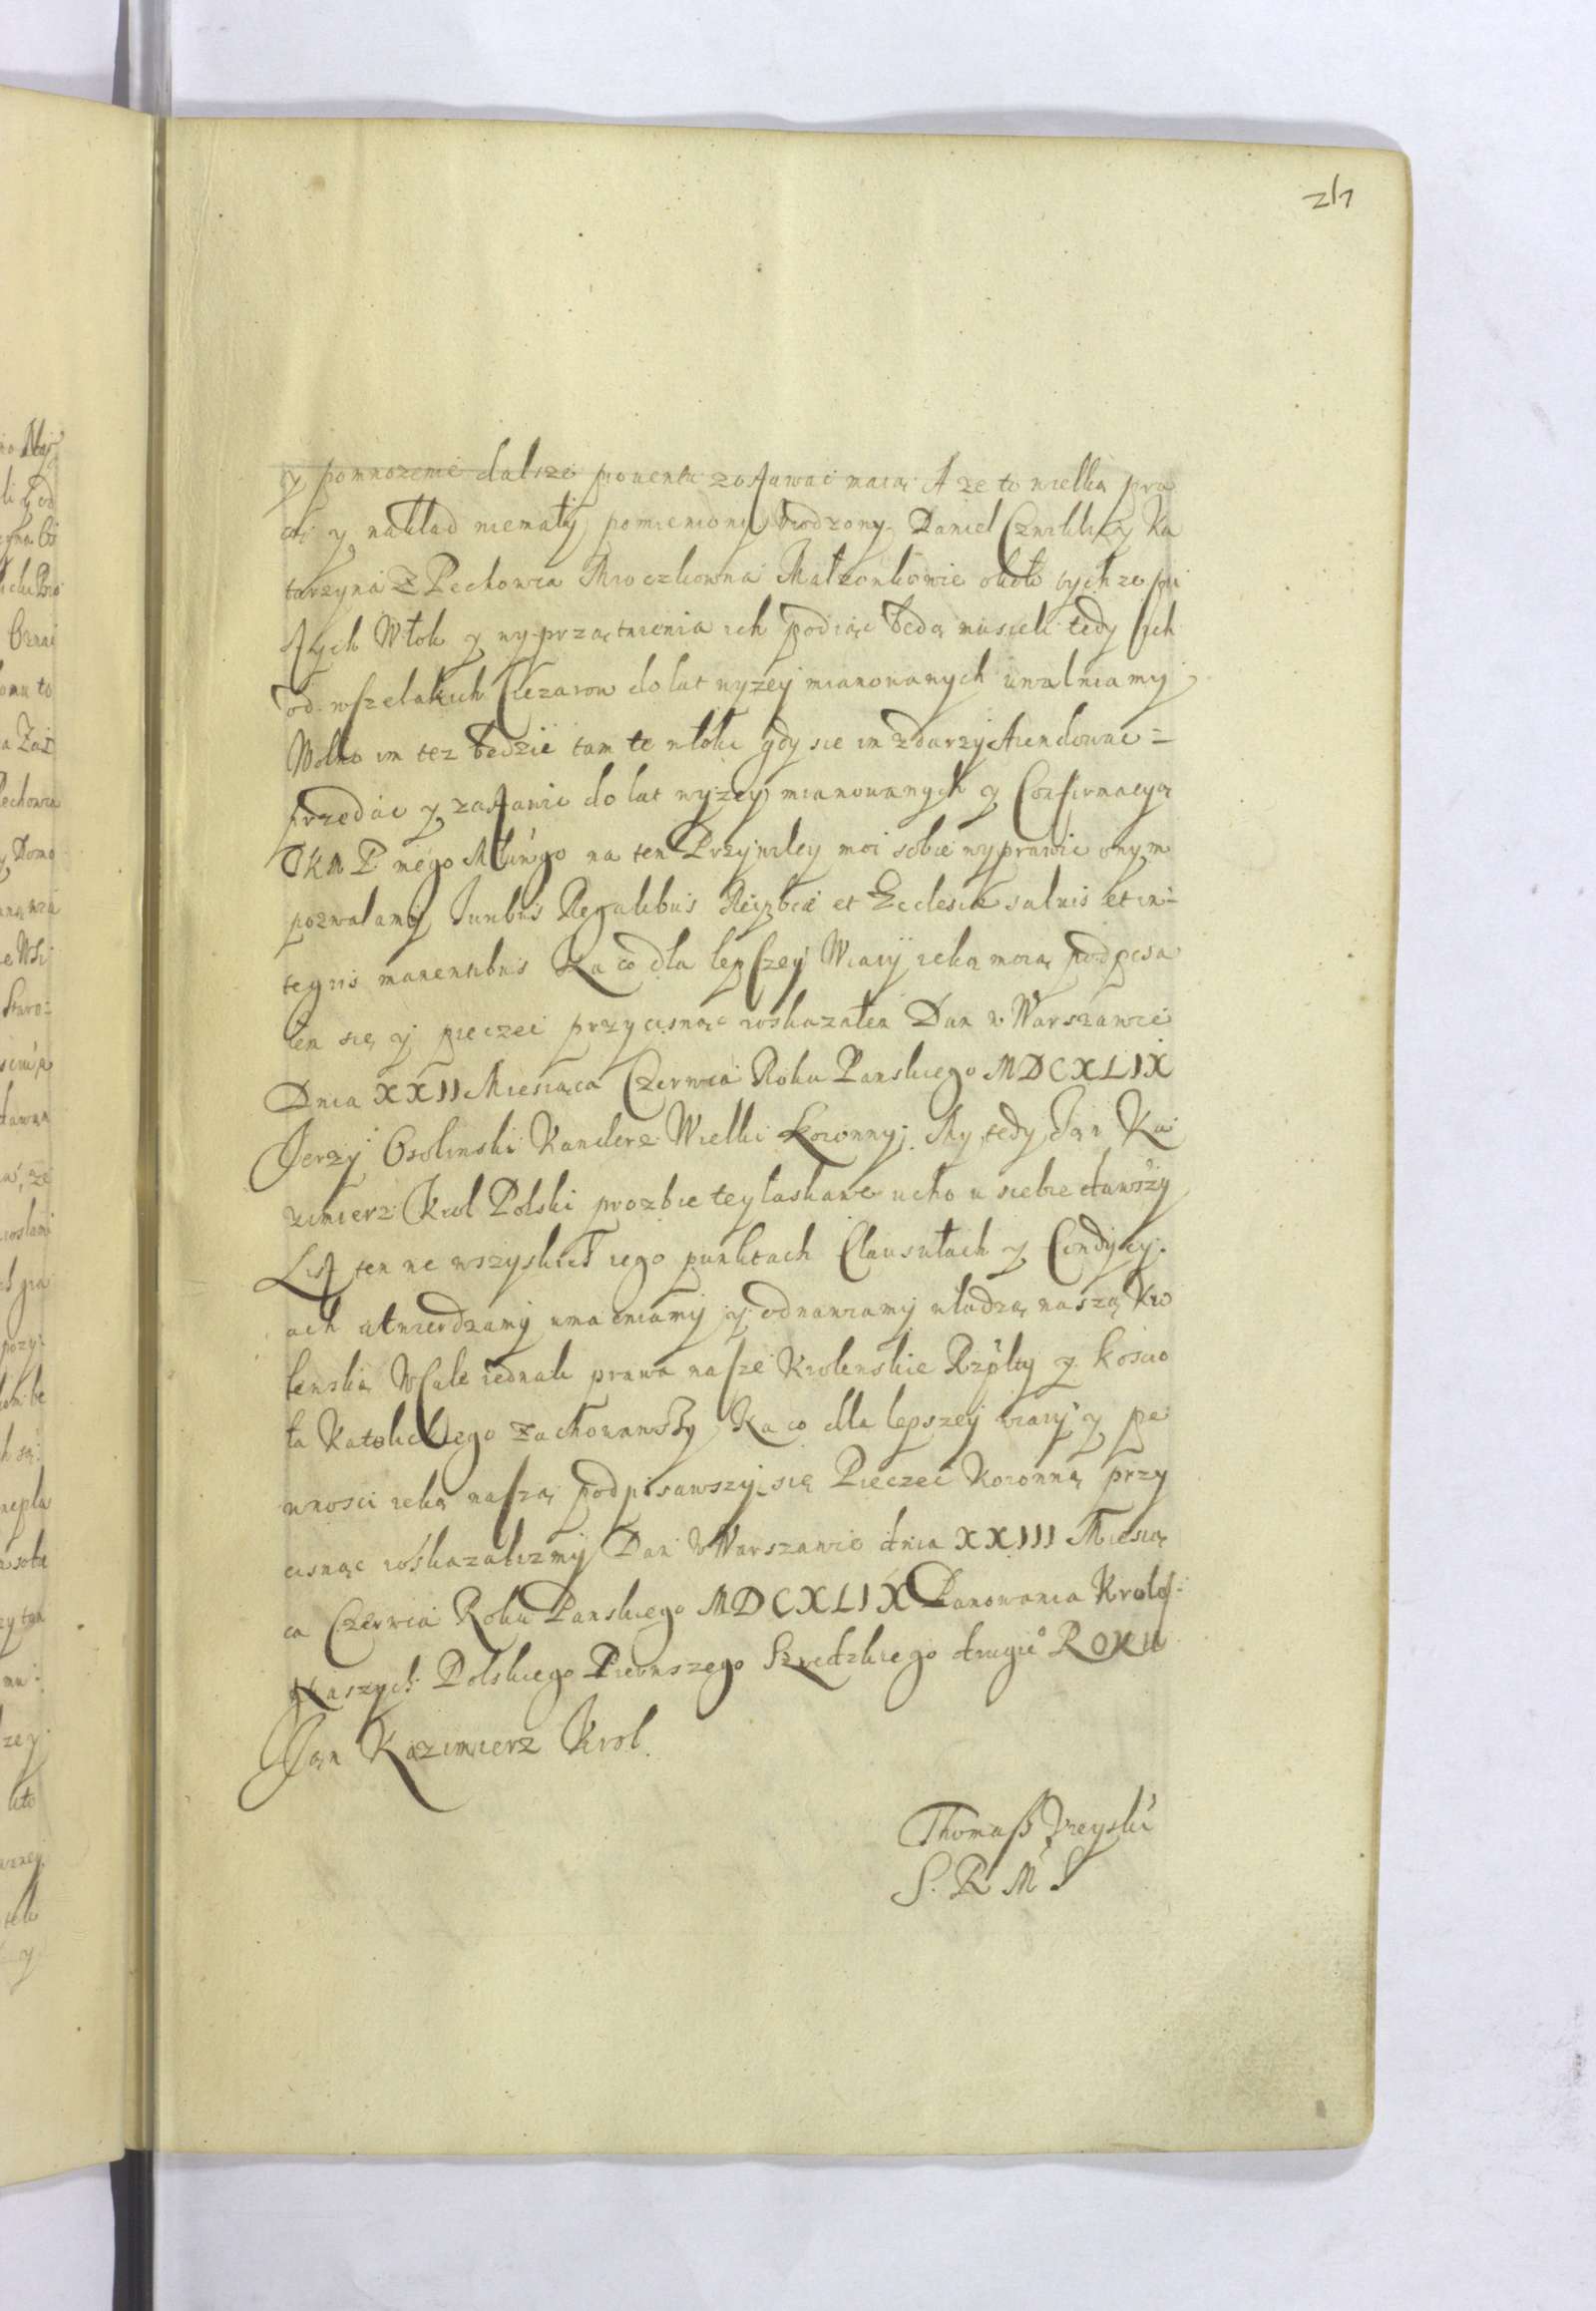 y pomnozenie dalsze prouentu zostawac maią A ze to wielką pra
cą y nakład niemały pomieniony Urodzony Daniel y Ka
tarzyna Z Pechowca Mroczkowna Małzonkowie około tychze pu
stych Włok y wyprzątnienia ich podiąc będą musieli tedy ich
od wszelakich Ciezarow do lat wyzey mianowanych uwalniamy
Wolno im tez będzie tam te włoki gdy sie im zdarzy Arendowac =
przedac y zastawic do lat wyzey mianowanych y Confirmacyą
JKM P mego Młwego na ten Przywiley moi sobie wyprawic onym
pozwalamy Iuribus Regalibus Reipbcae et Ecclesiae saluis et in=
tegris manentibus Na co dla lepszey Wiary ręką moią podpisa
łem się y pieczęc przycisnąc roskazałem Dan w Warszawie
Dnia XXII Miesiąca Czerwca Roku Panskiego MDCXLIX
Jerzy Osolinski Kanclerz Wielki Koronny. My tedy Jan Ka
zimierz Krol Polski prozbie tey łaskawe ucho u siebie dawszy
List ten we wszyskich iego punktach Clausułach y Condycy.
ach utwierdzamy umacniamy y odnawiamy władzą naszą Kro
lewską Wcale iednak prawa nasze Krolewskie Rzpltey y koscio
ła Katolickiego Zachowawszy Na co dla lepszey wiary y pe
wnosci ręką naszą podpisawszy się Pieczęc Koronną przy
cisnąc roskazalizmy Dan w Warszawie dnia XXIII Miesią
ca Czerwca Roku Panskiego MDCXLIX Panowania Krolestw
Naszych Polskiego Pierwszego Szwedzkiego drugie° ROKU
Jan Kazimierz Krol.
Thomasz Uieyski
S. R M S